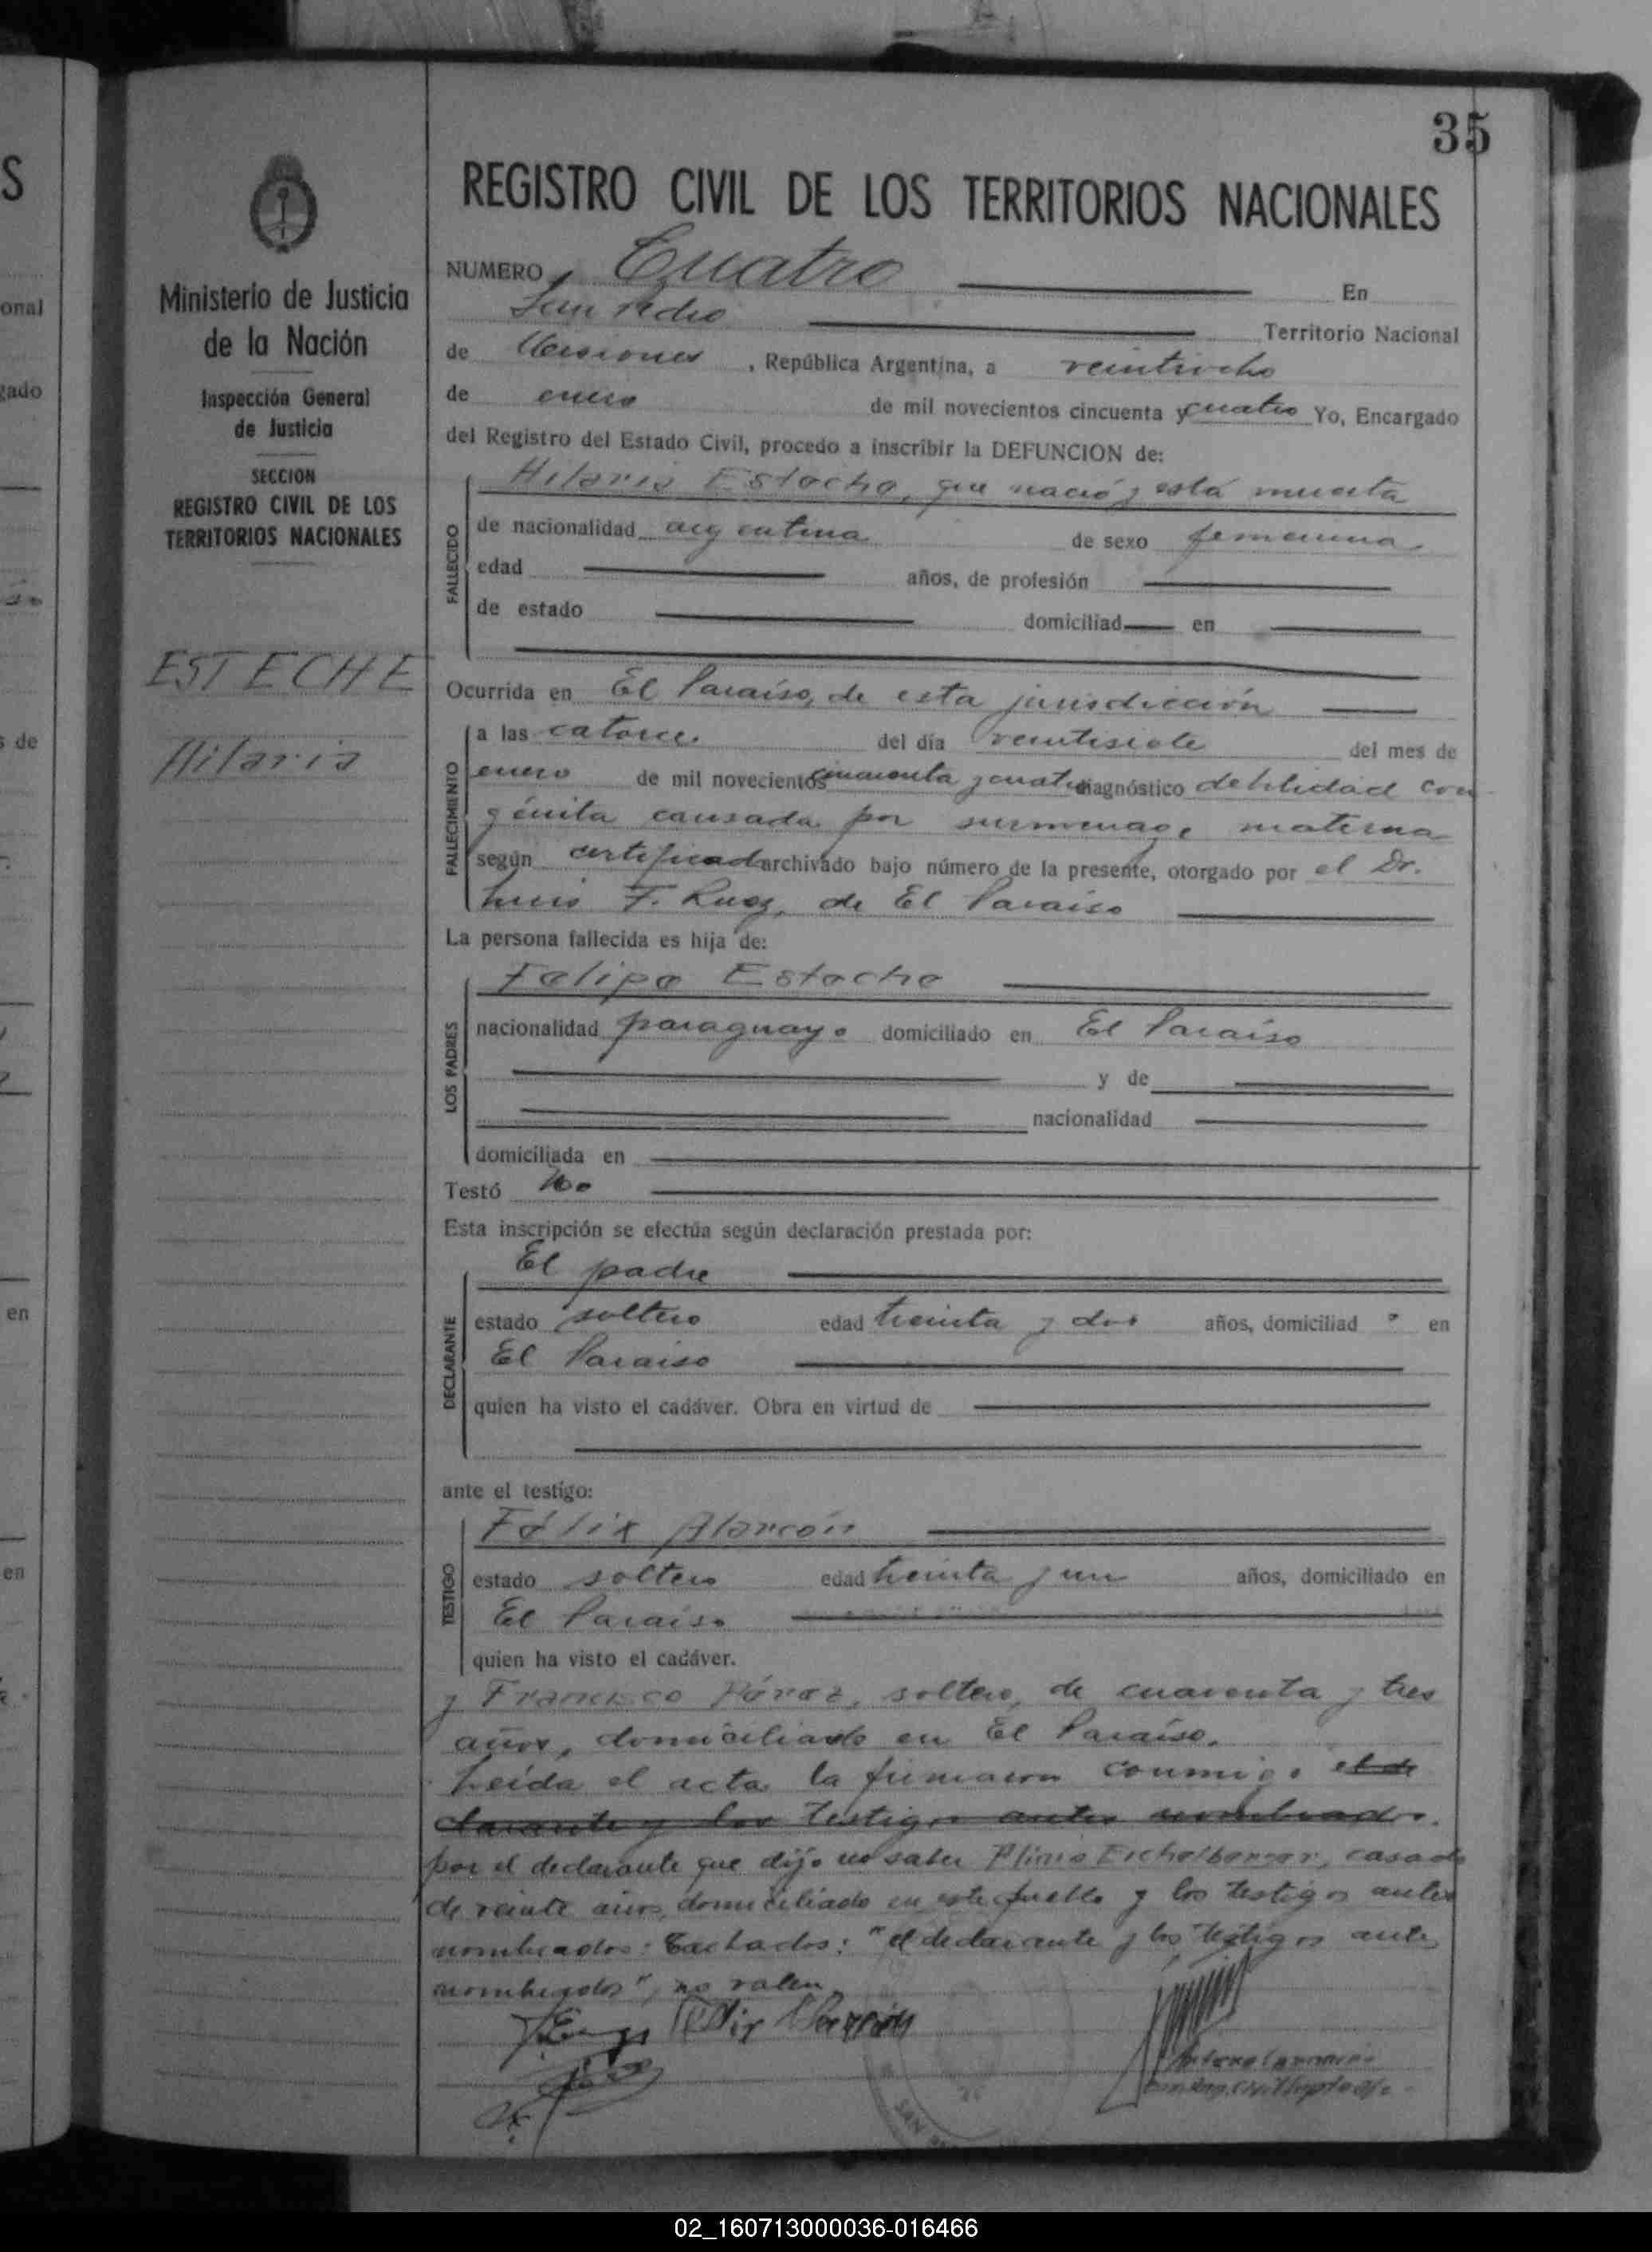 35
REGISTRO CIVIL DE LOS TERRITORIOS NACIONALES
Ministerio de Justicia
de la Nación
Inspección General
de Justicia
SECCION
REGISTRO CIVIL DE LOS
TERRITORIOS NACIONALES
ESTECHE
Hilaria
NUMERO Cuatro En
San Pedro Territorio Nacional
de Misiones, República Argentina, a veintiocho
de enero de mil novecientos cincuenta y cuatro Yo, Encargado
del Registro del Estado Civil, procedo a inscribir la DEFUNCION de:
Hilaria Esteche, que nació y está muerta
FALLECIDO
de nacionalidad argentina de sexo femenina
edad años, de profesión
de estado domiciliad en
Ocurrida en El Paraíso, de esta jurisdicción
FALLECIMIENTO
a las catorce del día veintisiete del mes de
enero de mil novecientos cincuenta y cuatro diagnóstico debilidad con
génita causada por surmenage materna
según certificado archivado bajo número de la presente, otorgado por el Dr.
Luis F. Ruez, de El Paraiso
La persona fallecida es hija de:
LOS PADRES
Felipe Esteche
nacionalidad paraguayo domiciliado en El Paraíso
y de
nacionalidad
domiciliada en
Testó No
Esta inscripción se efectúa según declaración prestada por:
El padre
DECLARANTE
estado soltero edad treinta y dos años, domiciliad o en
El Paraiso
quien ha visto el cadáver. Obra en virtud de
ante el testigo:
Félix Alarcón
TESTIGO
estado soltero edad treinta y un años, domiciliado en
El Paraiso
quien ha visto el cadáver.
y Francisco Pérez, soltero, de cuarenta y tres
años, domiciliado en El Paraíso.
Leída el acta la firmaron conmigo el de
clarante y los testigos antes nombrados.
por el declarante que dijo no saber Plinio Eichelberger, casado
de veinte años, domiciliado en este pueblo y los testigos antes
nombrados: Tachados: "el declarante y los testigos antes
nombrados", no valen
Félix Alarcón
SAN
02_160713000036-016466